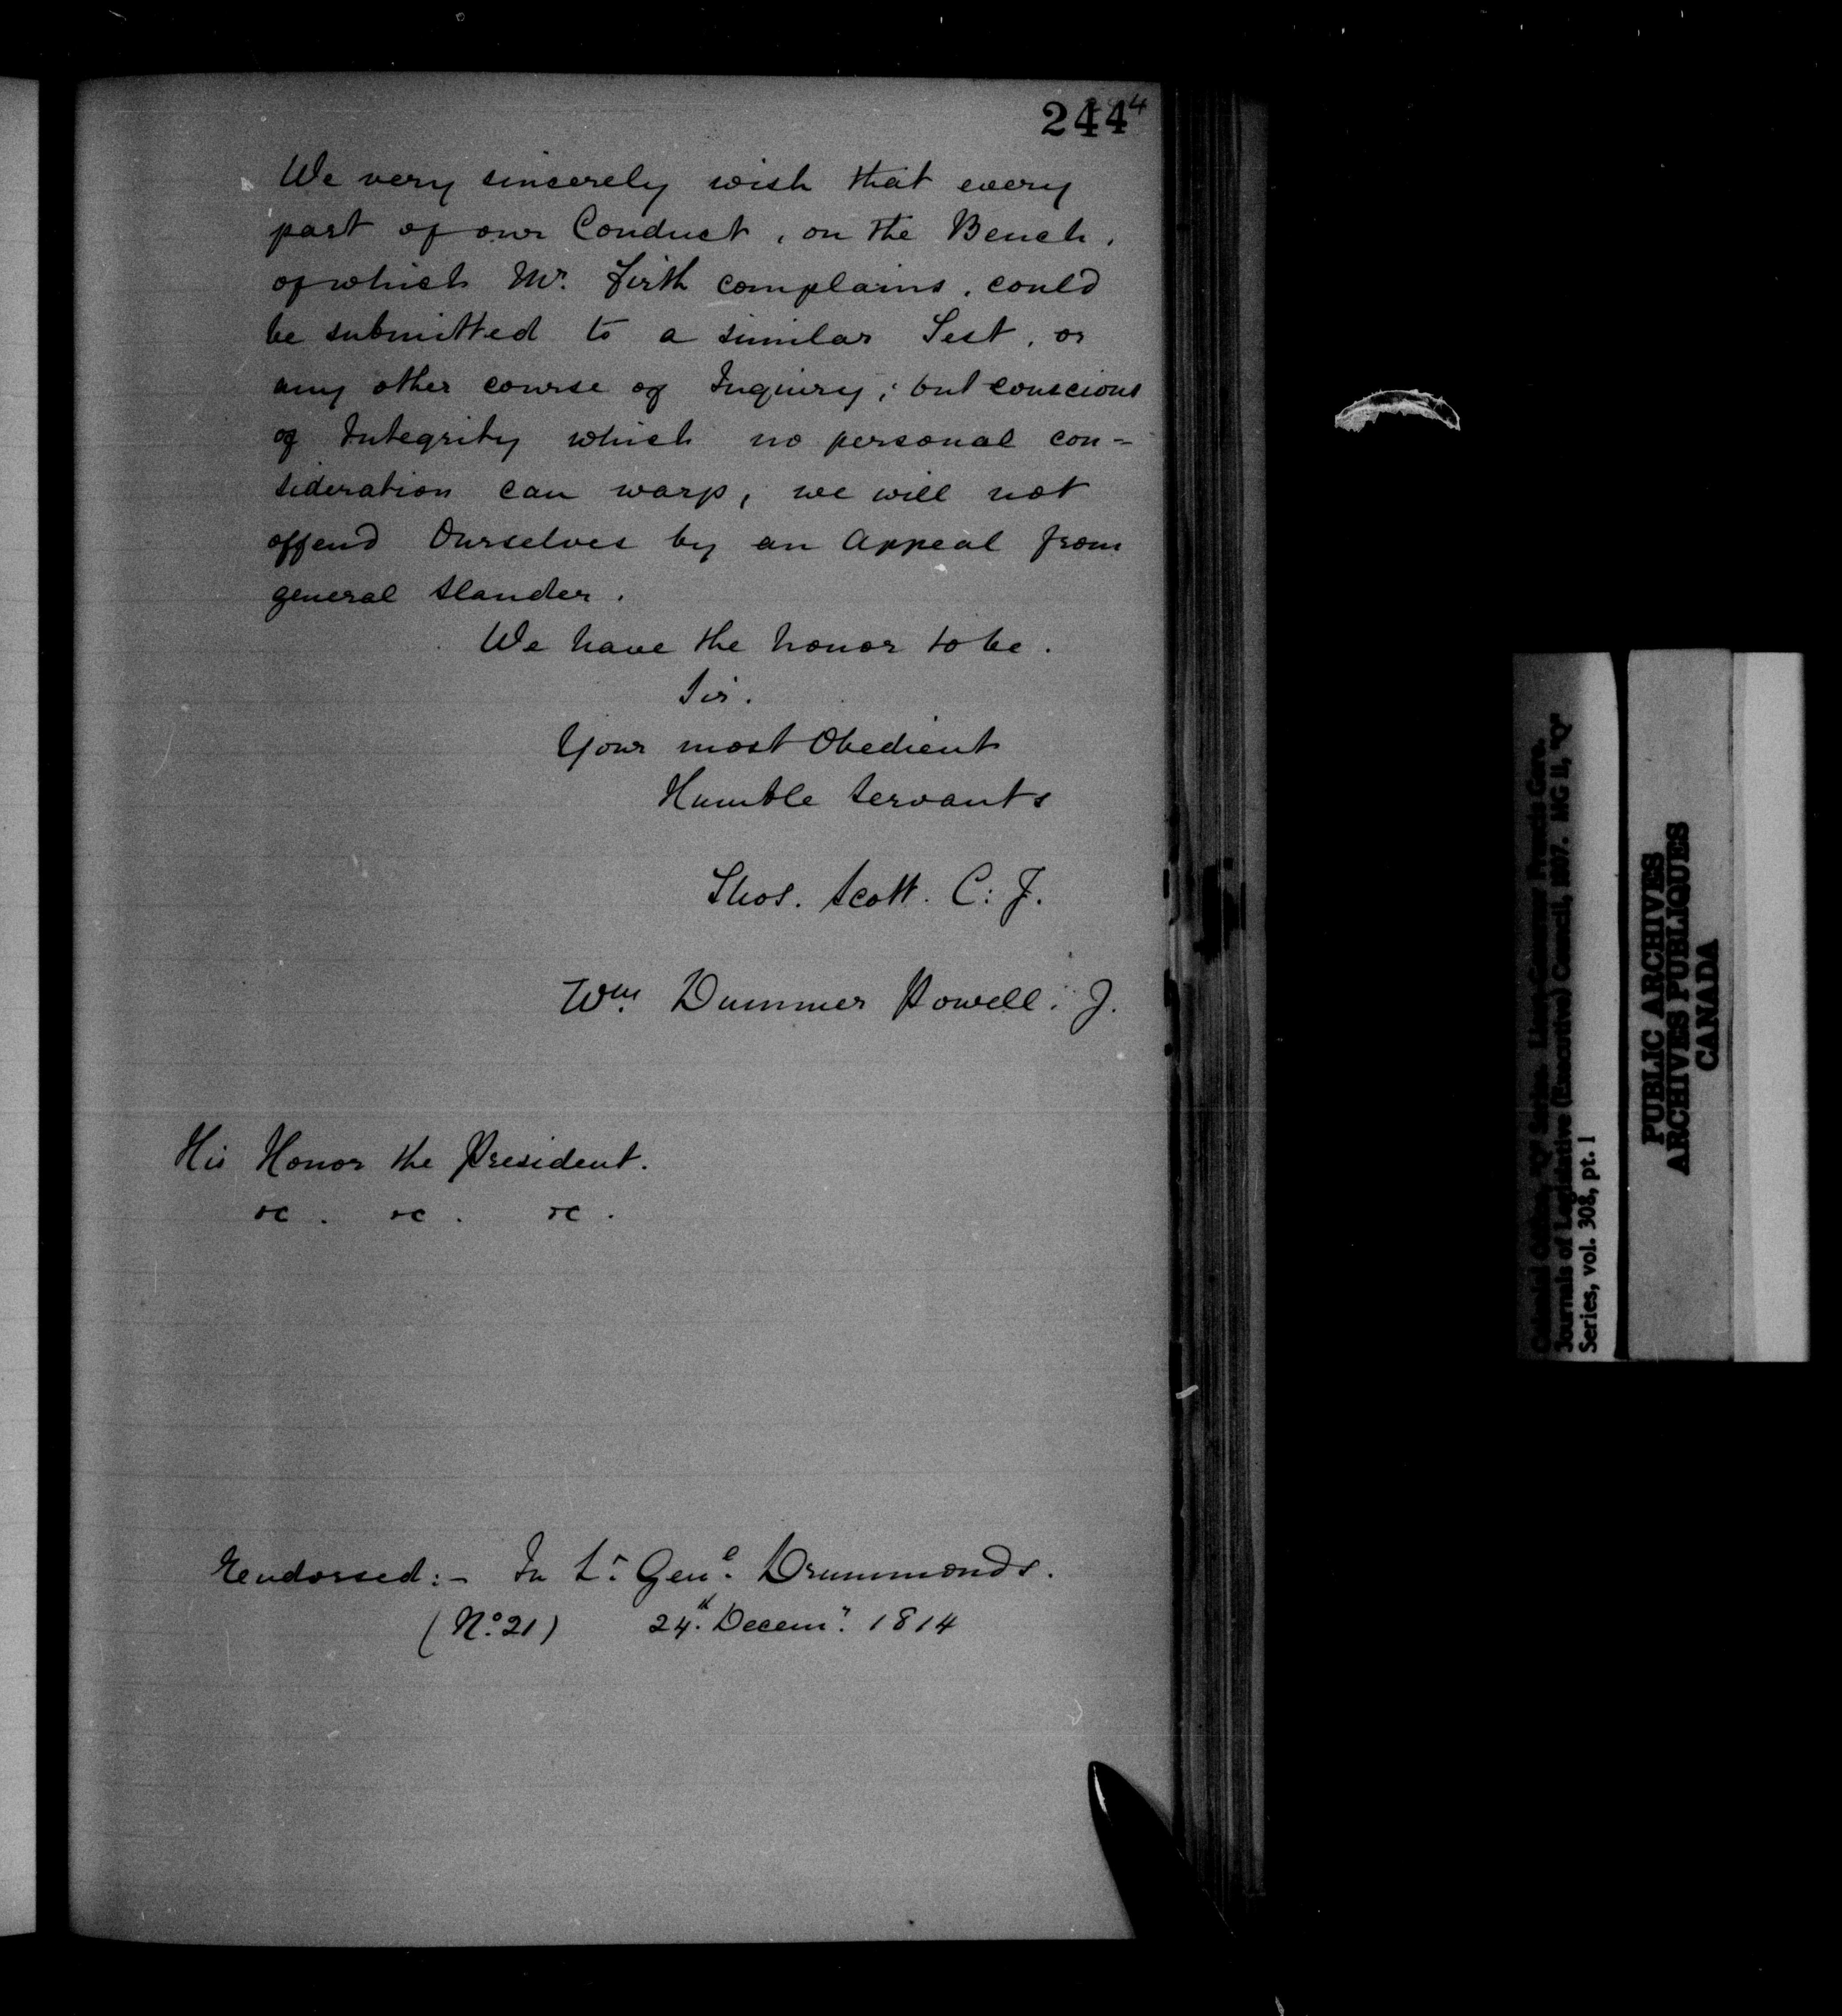 244 4
We very sincerely wish that every
part of our Conduct, on the Bench,
of which Mr. Firth complains, could
be submitted to a similar Test, or
any other course of Inquiry; but conscious
of Integrity which no personal con-
sideration can warp, we will not
offend Ourselves by an Appeal from
general slander.
We have the honor to be.
Sir.
Your most Obedient
Humble Servants
Thos. Scott. C: J.
Wm. Dummer Powell. J.
His Honor the President.
&c. &c. &c.
Endorsed:- In Lt. Genl. Drummonds.
(No. 21) 24th. Decemr. 1814
Colonial Office, "Q" Series. Lieut-Governor Francis Gore.
Journals of Legislative (Executive) Council, 1807. MG 11, "Q"
Series, vol. 308, pt. 1
PUBLIC ARCHIVES
ARCHIVES PUBLIQUES
CANADA